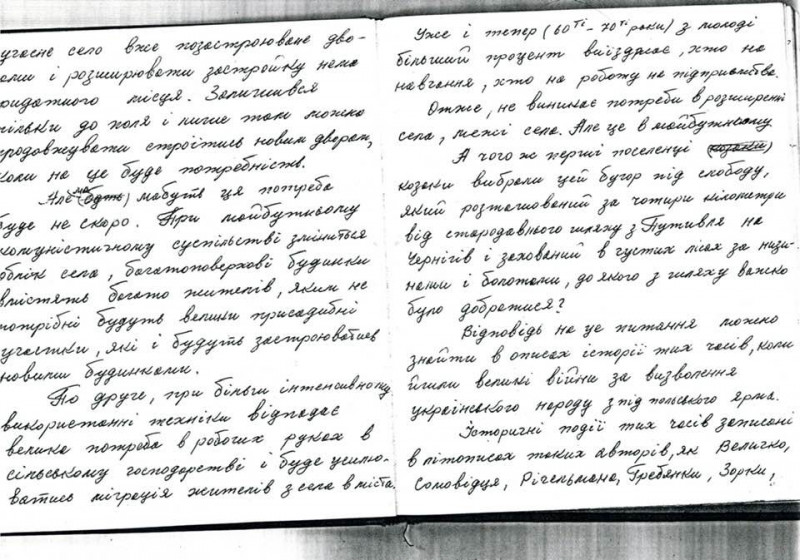 учасне село вже позастроюване дво-
ами і розширювати застройку нема
ридатного місця. Залишився
ільки до поля і лише там можно
родовжувати строїтись новим дворам,
коли на це буде потребність.
Але мабуть ця потреба
буде не скоро. При майбутньому
комуністичному суспільстві зміниться
облік села, богатоповерхові будинки
вмістять богато жителів, яким не
потрібні будуть велики присадибні
участки, які і будуть застроюватись
новими будинками.
По друге, при більш інтенсивному
використанні техніки відпадає
велика потреба в робочих руках в
сільському господарстві і буде усилю-
ватись міграція жителів з села в міста.
Уже і тепер (60ті - 70ті роки) з молоді
більший процент виїзджає, хто на
навчання, хто на роботу на підприємства.
Отже, не виникає потреби в розширенні
села, межі села. Але це в майбутньому
А чого ж перші поселенці (козаки)
козаки вибрали цей бугор під слободу,
який розташований за чотири кілометри
від стародавнього шляху з Путивля на
Чернігів і захований в густих лісах за низи-
нами і болотами, до якого з шляху важко
було добратися?
Відповідь на це питання можно
знайти в описах історії тих часів, коли
йшли великі війни за визволення
українського народу з під польського ярма.
Історичні події тих часів записані
в літописах таких авторів, як Величко,
Самовідця, Рігельмана, Гребянки, Зорки,